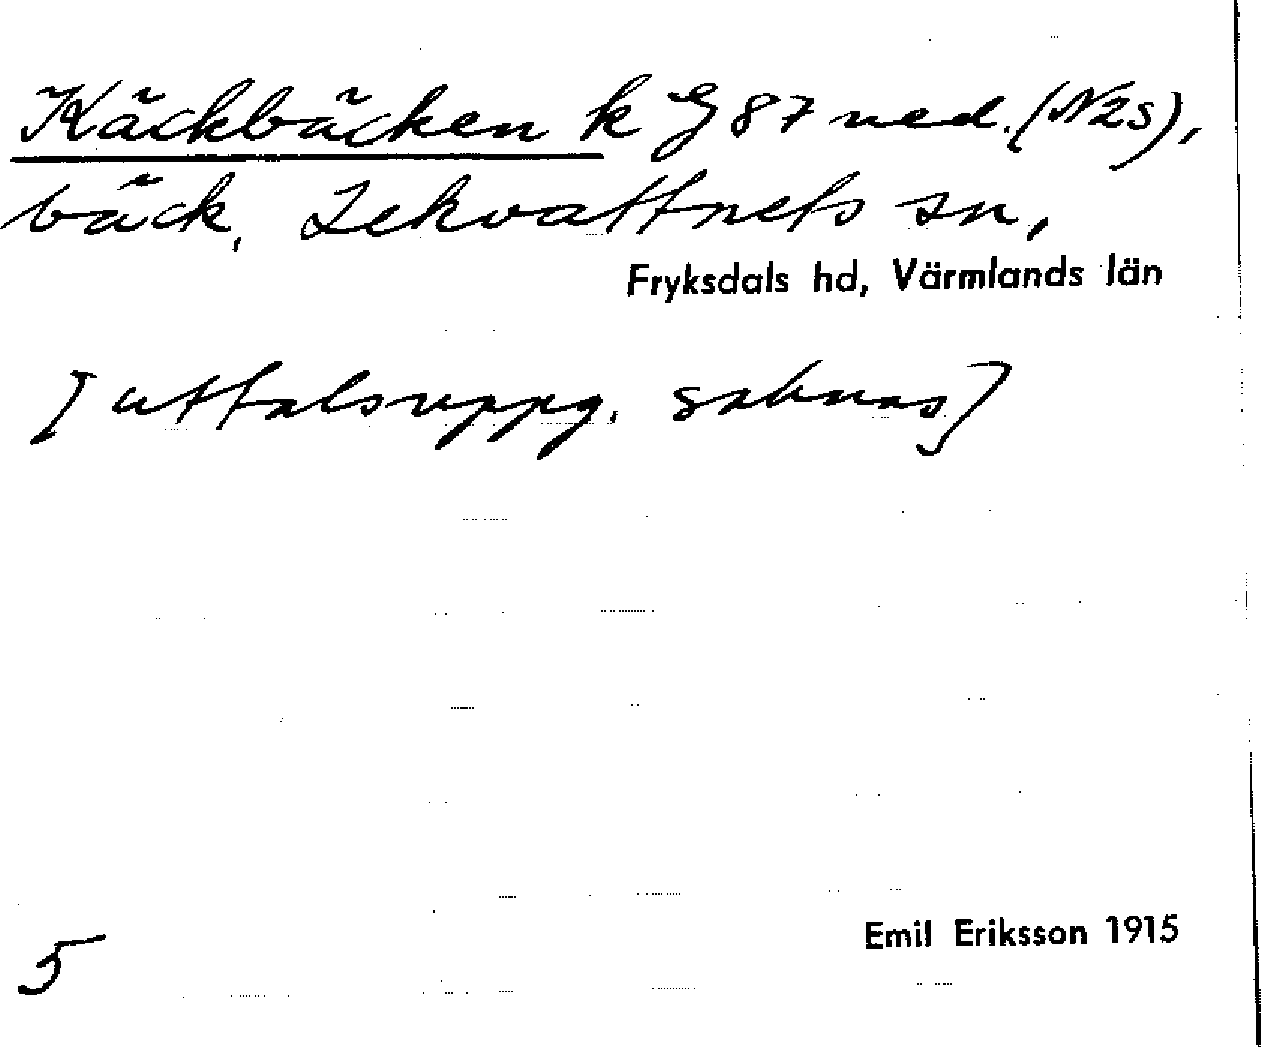 Käckbäcken k G 87 ned. (N2S),
bäck, Lekvattnets sn,
Fryksdals hd, Värmlands län
[uttalsuppg. saknas]
Emil Eriksson 1915
5